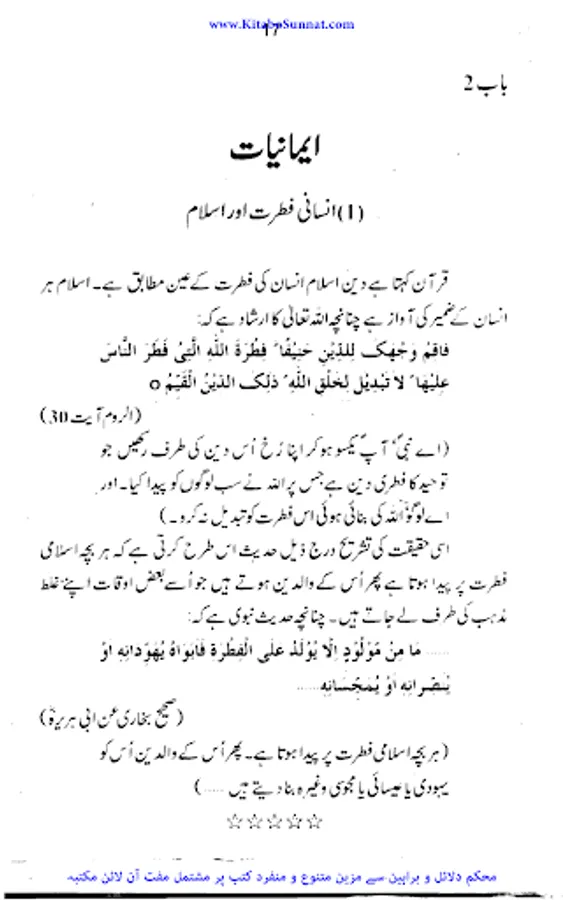 www.KitaboSunnat.com
17
باب 2
ایمانیات
(1) انسانی فطرت اور اسلام
قرآن کہتا ہے دین اسلام انسان کی فطرت کے عین مطابق ہے۔ اسلام ہر
انسان کے ضمیر کی آواز ہے چنانچہ اللہ تعالیٰ کا ارشاد ہے کہ:
فَاقِمْ وَجْهَكَ لِلدِّيْنِ حَنِيْفًا ؕ فِطْرَةَ اللّٰهِ الَّتِيْ فَطَرَ النَّاسَ
عَلَيْهَا ؕ لَا تَبْدِيْلَ لِخَلْقِ اللّٰهِ ؕ ذٰلِكَ الدِّيْنُ الْقَيِّمُ ○
(الروم آیت 30)
(اے نبیؐ آپؐ یکسو ہو کر اپنا رُخ اُس دین کی طرف رکھیں جو
توحید کا فطری دین ہے جس پر اللہ نے سب لوگوں کو پیدا کیا۔ اور
اے لوگو! اللہ کی بنائی ہوئی اس فطرت کو تبدیل نہ کرو۔)
اسی حقیقت کی تشریح درج ذیل حدیث اس طرح کرتی ہے کہ ہر بچہ اسلامی
فطرت پر پیدا ہوتا ہے پھر اُس کے والدین ہوتے ہیں جو اُسے بعض اوقات اپنے غلط
مذہب کی طرف لے جاتے ہیں۔ چنانچہ حدیث نبوی ہے کہ:
...... مَا مِنْ مَوْلُوْدٍ اِلَّا يُوْلَدُ عَلَى الْفِطْرَةِ فَاَبَوَاهُ يُهَوِّدَانِهِ اَوْ
يُنَصِّرَانِهِ اَوْ يُمَجِّسَانِهِ......
(صحیح بخاری عن ابی ہریرۃؓ)
(ہر بچہ اسلامی فطرت پر پیدا ہوتا ہے۔ پھر اُس کے والدین اُس کو
یہودی یا عیسائی یا مجوسی وغیرہ بنا دیتے ہیں ......)
☆☆☆☆☆
محکم دلائل و براہین سے مزین متنوع و منفرد کتب پر مشتمل مفت آن لائن مکتبہ